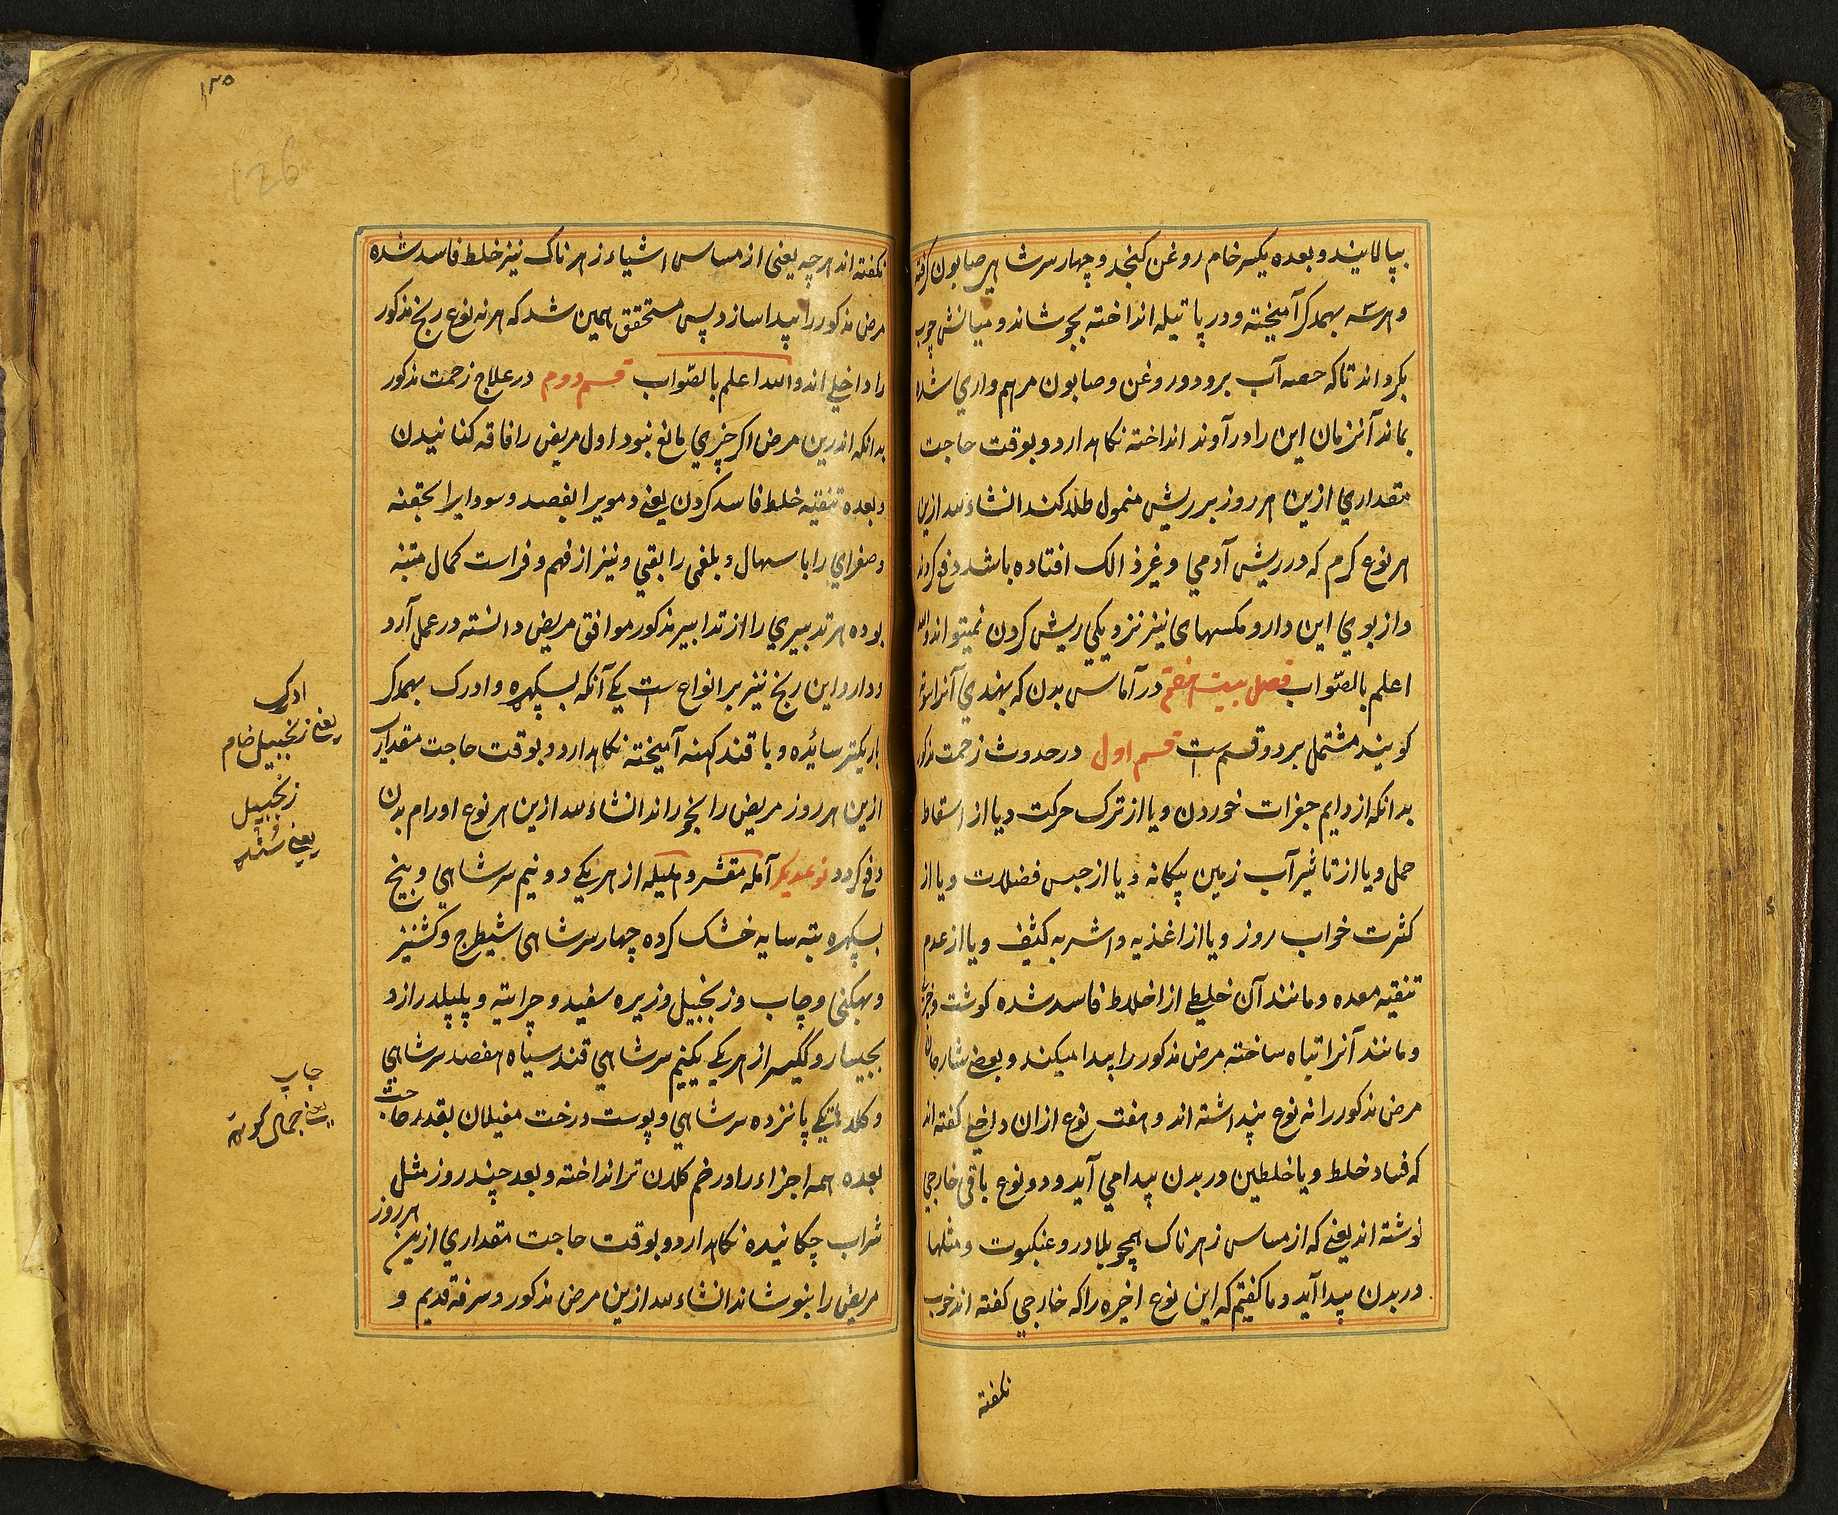 بپالایند و بعده یکسیر خام روغن کنجد و چهار سرشاهی صابون گرفته
و هر سه بهمدکر آمیخته و در پاتیله انداخته بجوشاند و میانش چوب
بکرداند تا که حصه آب برود و روغن و صابون مرهم واری شده
بماند آنزمان این را در آوند انداخته نکاهدارد و بوقت حاجت
مقداری ازین هر روز بر ریش معمول طلا کند انشاءالله ازین
هر نوع کرم که در ریش آدمی و غیر ذالک افتاده باشد دفع کرداند
و از بوی این دارو مکسهای نیز نزدیکی ریش کردن نمیتواند والله
اعلم بالصواب فصل بیست هفتم در آماس بدن که بهندی آنرا
کویند مشتمل بر دو قسم است قسم اول در حدوث زحمت مذکور
بدانکه از دایم جغرات خوردن و یا از ترک حرکت و یا از اسقاط
حمل و یا از تاثیر آب زمین بیکانه و یا از حبس فضلات و یا از
کثرت خواب روز و یا از اغذیه و اشربه کثیف و یا از عدم
تنقیه معده و مانند آن خلیطی از اخلاط فاسد شده کوشت و
و مانند آنرا تباه ساخته مرض مذکور را پیدا میکند و بعضی شارحان
مرض مذکور را نه نوع پنداشته اند و هفت نوع ازان داخلی کفته اند
که فساد خلط و یا خلطین در بدن پیدا می آید و دو نوع باقی خارجی
نوشته اند یعنی که از مساس زهرناک همچو بلادر و عنکبوت و مثلها
در بدن پیدا آید و ما کفتیم که این نوع اخیره را که خارجی کفته اند خوب
نکفته
۱۲۵
126
نکفته اند هر چه یعنی از مساس اشیاء زهرناک نیز خلط فاسد شده
مرض مذکور را پیدا سازد پس مستحقق همین شد که هر نه نوع رنج مذکور
را داخلی اند والله اعلم بالصواب قسم دوم در علاج زحمت مذکور
بدانکه اندرین مرض اکر چیزی مانع نبود اول مریض را فاقه کنانیدن
و بعده تنقیه خلط فاسد کردن یعنی دمویرا بفصد و سودایرا بحقنه
و صفرای را باسهال و بلغمی را بقی و نیز از فهم و فراست کمال متنبه
بوده هر تدبیری را از تدابیر مذکور موافق مریض دانسته در عمل آرد
و دارو این رنج نیز بر انواع ست یکی آنکه بسکهپره و ادرک بهمدکر
باریکتر سائیده و با قند کهنه آمیخته نکاهدارد و بوقت حاجت مقداری
ازین هر روز مریض را بخوراند انشاءالله ازین هر نوع اورام بدن
دفع کردد نوعدیکر آمله مقشر و هلیله از هر یکی دو نیم سرشاهی و بیخ
بسکهپره بته سایه خشک کرده چهار سرشاهی شیطرج و کشنیز
و بهیکنی و چاب و زنجبیل و زیره سفید و چرایته و پلپلدراز و
بجیسار و کیکیر از هر یکی یکنیم سرشاهی قند سیاه هفصد سرشاهی
و کلا پانزده سرشاهی و پوست درخت مغیلان بقدر حاجت
بعده همه اجزاء را در خم کلان تر انداخته و بعد چند روز مثل
شراب چکانیده نکاهدارد و بوقت حاجت مقداری ازین هر روز
مریض را بنوشاند انشاءالله ازین مرض مذکور و سرفه قدیم و
ادرک
یعنی زنجبیل خام
زنجبیل
یعنی سنته
چاپ
یعنی جمال کوته